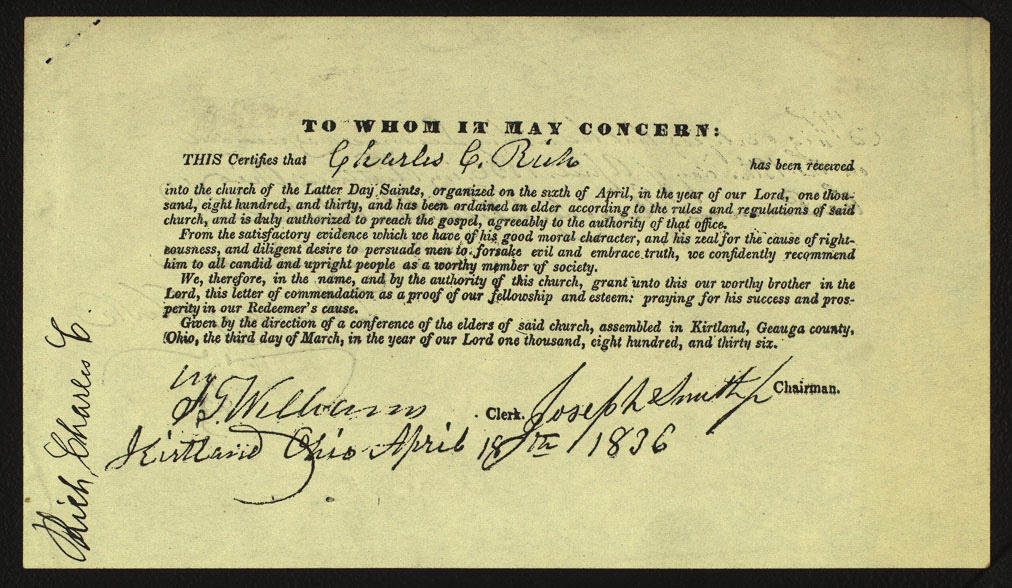 TO WHOM IT MAY CONCERN:
THIS Certifies that Charles C. Rich has been received
into the church of the Latter Day Saints, organized on the sixth of April, in the year of our Lord, one thou-
sand, eight hundred, and thirty, and has been ordained an elder according to the rules and regulations of said
church, and is duly authorized to preach the gospel, agreeably to the authority of that office.
From the satisfactory evidence which we have of his good moral character, and his zeal for the cause of right-
eousness, and diligent desire to persuade men to forsake evil and embrace truth, we confidently recommend
him to all candid and upright people as a worthy member of society.
We, therefore, in the name, and by the authority of this church, grant unto this our worthy brother in the
Lord, this letter of commendation as a proof of our fellowship and esteem: praying for his success and pros-
perity in our Redeemer's cause.
Given by the direction of a conference of the elders of said church, assembled in Kirtland, Geauga county,
Ohio, the third day of March, in the year of our Lord one thousand, eight hundred, and thirty six.
F G Williams Clerk. Joseph Smith Jr Chairman.
Kirtland Ohio April 18th 1836
Rich, Charles C.